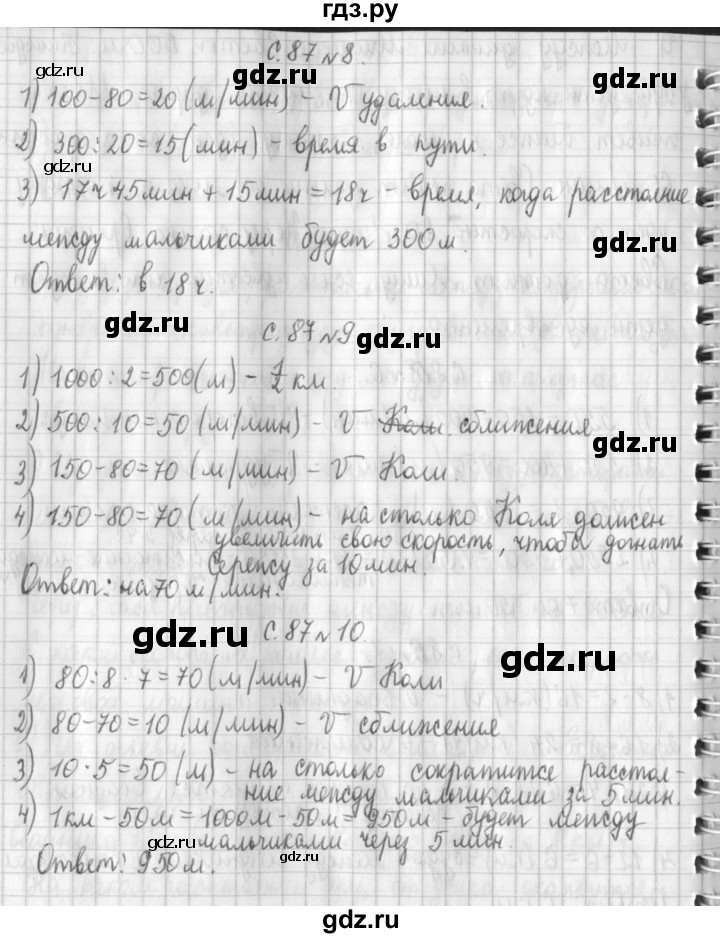 гдз.ру
с. 87 №8.
gdz.ru gdz.ru
1) 100-80=20 (м/мин) - V удаления.
gdz.ru
2) 300:20=15 (мин) - время в пути.
gdz.ru
3) 17ч 45мин + 15мин = 18ч - время, когда расстояние
между мальчиками будет 300м.
gdz.ru
Ответ: в 18ч.
с. 87 №9
gdz.ru gdz.ru
1) 1000:2=500(м) - 1/2 км.
2) 500:10=50 (м/мин) - V Коли. сближения
gdz.ru
3) 150-80=70 (м/мин) - V Коли.
4) 150-80=70 (м/мин) - на столько Коля должен
увеличить свою скорость, чтобы догнать
Сережу за 10мин.
Ответ: на 70 м/мин.
с. 87 №10.
gdz.ru gdz.ru
1) 80:8·7=70 (м/мин) - V Коли
2) 80-70=10 (м/мин) - V сближения
3) 10·5=50 (м) - на столько сократится расстоя-
ние между мальчиками за 5мин.
4) 1км-50м=1000м-50м=950м - будет между
мальчиками через 5 мин.
Ответ: 950м.
gdz.ru gdz.ru
gdz.ru